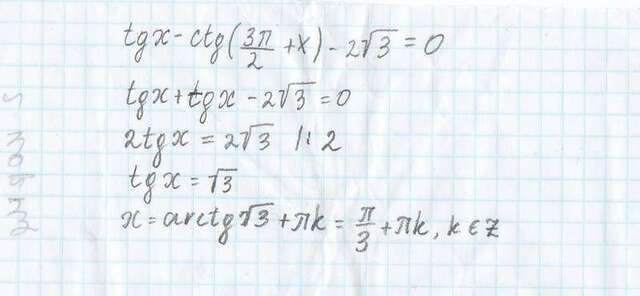 tgx - ctg(3π/2 + x) - 2√3 = 0
tgx + tgx - 2√3 = 0
2tgx = 2√3 |: 2
tgx = √3
x = arctg√3 + πk = π/3 + πk, k ∈ Z